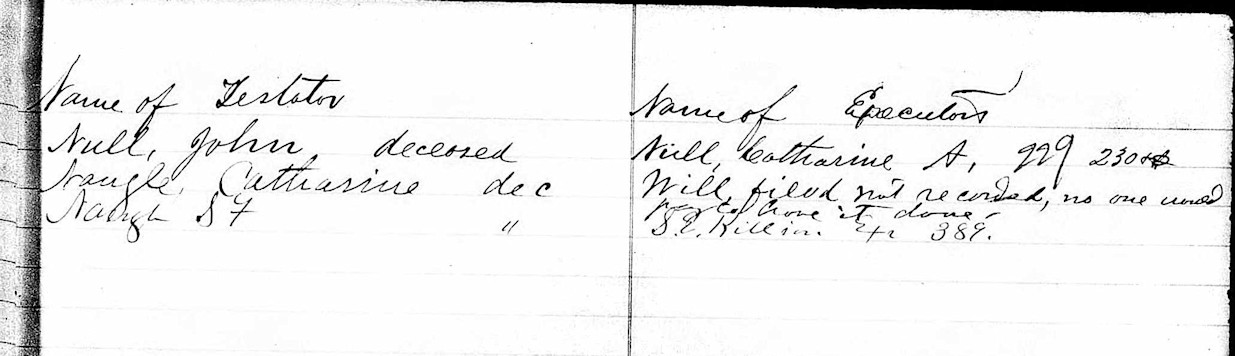 Name of Testator
Null, John, deceased
Naugle, Catharine dec
Naugle S F "
Name of Executors
Null, Catharine A, 229 230
Will filed not recorded, no one would
pay to have it done.
Killian 389.